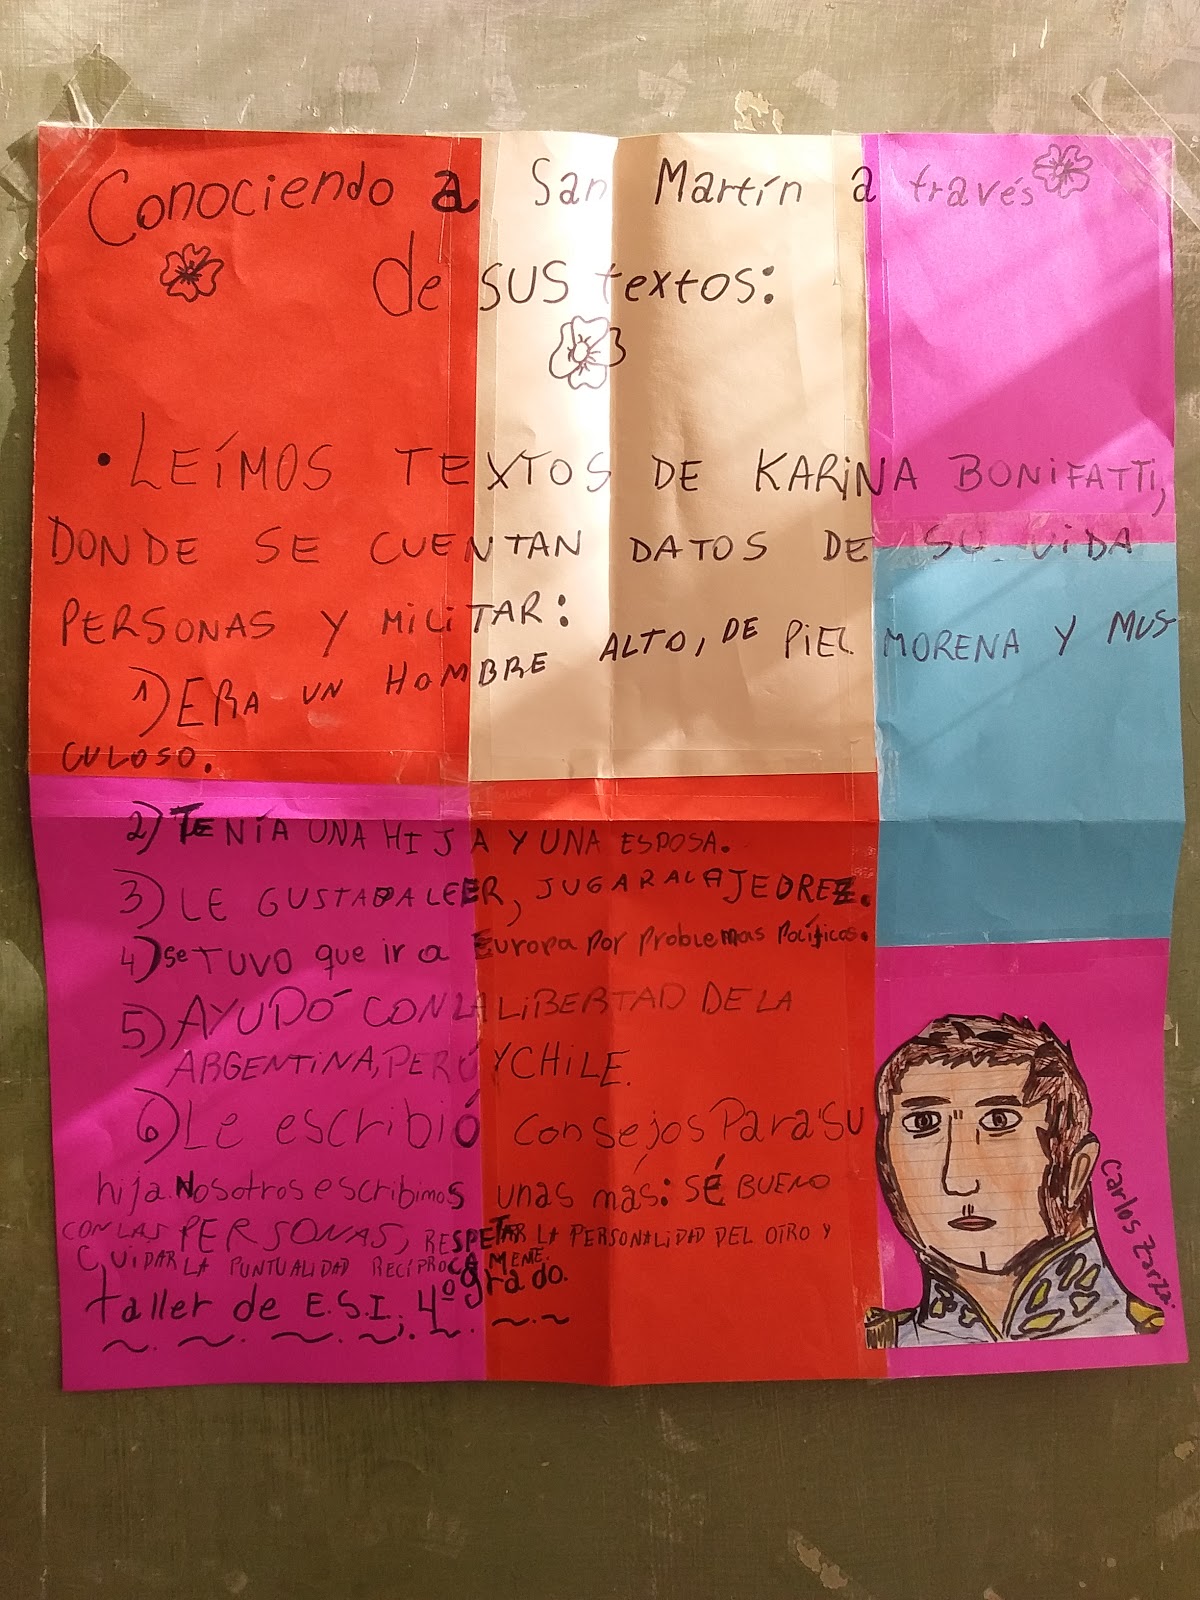 Conociendo a San Martín a través
de sus textos:
• LEÍMOS TEXTOS DE KARINA BONIFATTI,
DONDE SE CUENTAN DATOS DE SU VIDA
PERSONAS Y MILITAR:
1) ERA UN HOMBRE ALTO, DE PIEL MORENA Y MUS-
CULOSO.
2) TENÍA UNA HIJA Y UNA ESPOSA.
3) LE GUSTABA LEER, JUGAR AL AJEDREZ.
4) se TUVO que ir a Europa por problemas políticos.
5) AYUDÓ CON LA LIBERTAD DE LA
ARGENTINA, PERÚ Y CHILE.
6) Le escribió consejos Para su
hija. Nosotros escribimos unas más: SÉ BUENO
CON LAS PERSONAS, RESPETAR LA PERSONALIDAD DEL OTRO Y
CUIDAR LA PUNTUALIDAD RECÍPROCAMENTE.
taller de E.S.I, 4º grado.
Carlos Zarza.